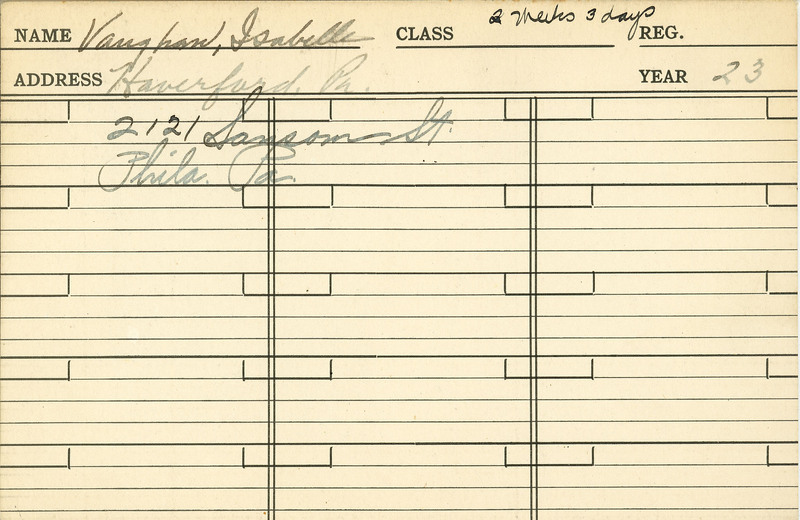 NAME Vaughan, Isabelle CLASS 2 Weeks 3 days REG.
ADDRESS Haverford, Pa. YEAR 23
2121 Sansom St.
Phila. Pa.